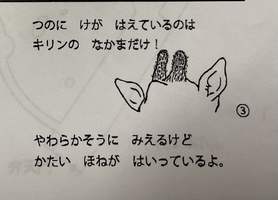 つのに けが はえているのは
キリンの なかまだけ！
③
やわらかそうに みえるけど
かたい ほねが はいっているよ。